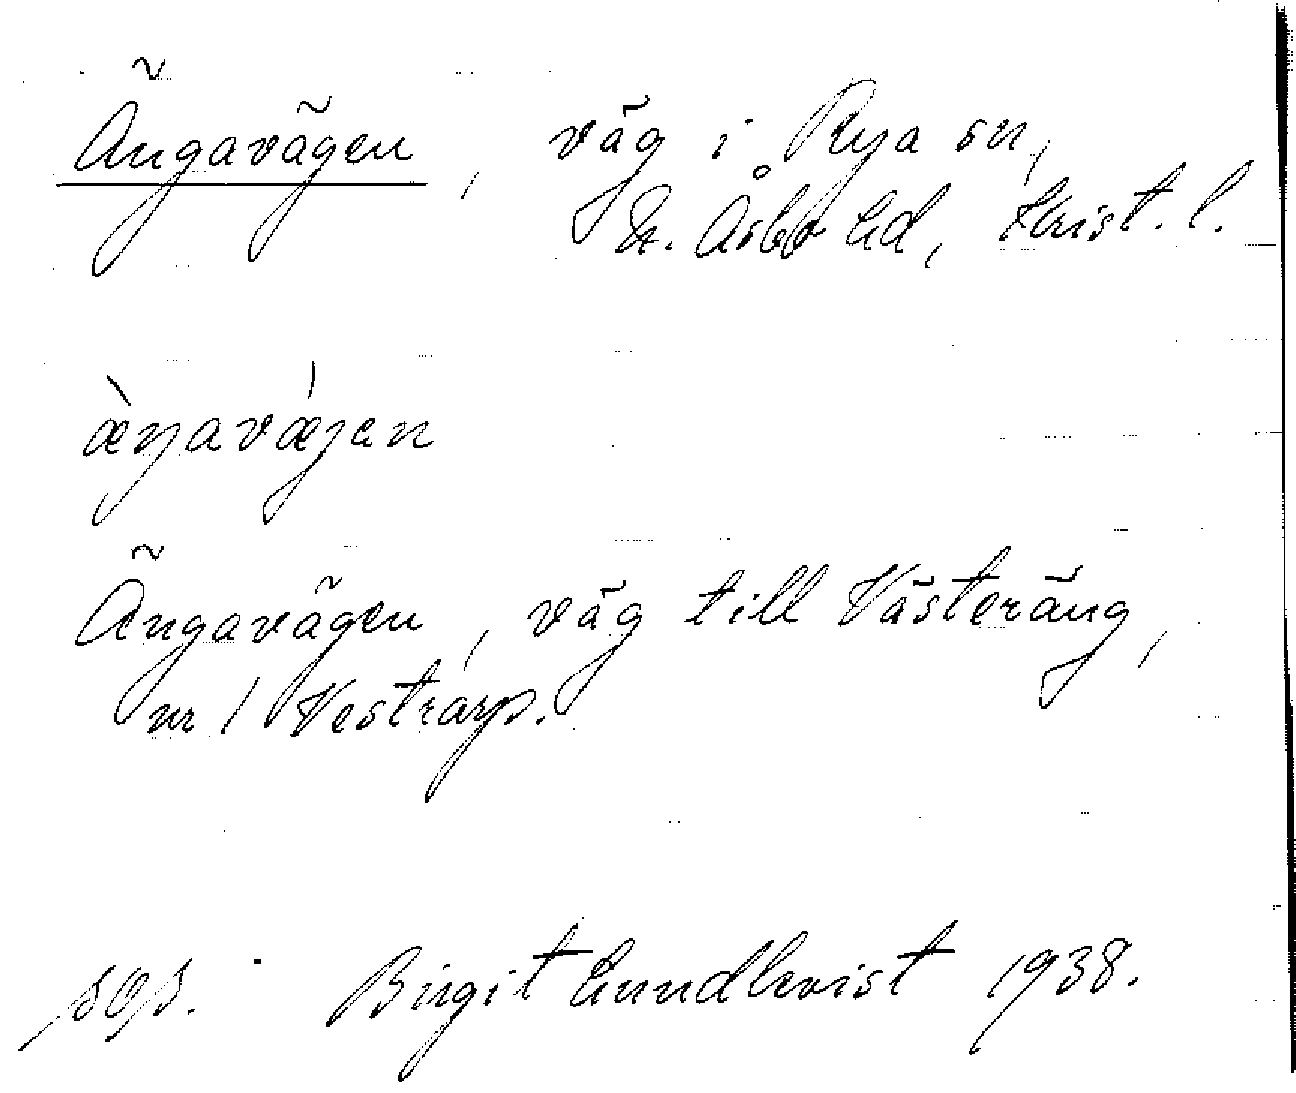 Ängavägen, väg i Rya sn,
N. Åsbo hd, Krist. l.
æ̀ŋavǽjen
Ängavägen, väg till Västeräng,
nr 1 Vestrarp.
Birgit Lundkvist 1938.